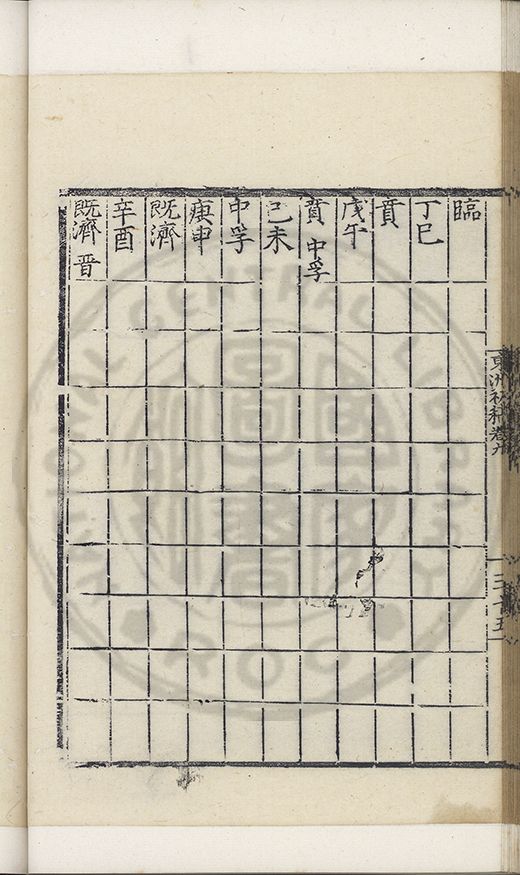 臨
丁巳
賁
戊午
賁 中孚
己未
中孚
庚申
既濟
辛酉
既濟 晉
東洲初稿卷九
三十五
NATIONAL CENTRAL LIBRARY
ROC